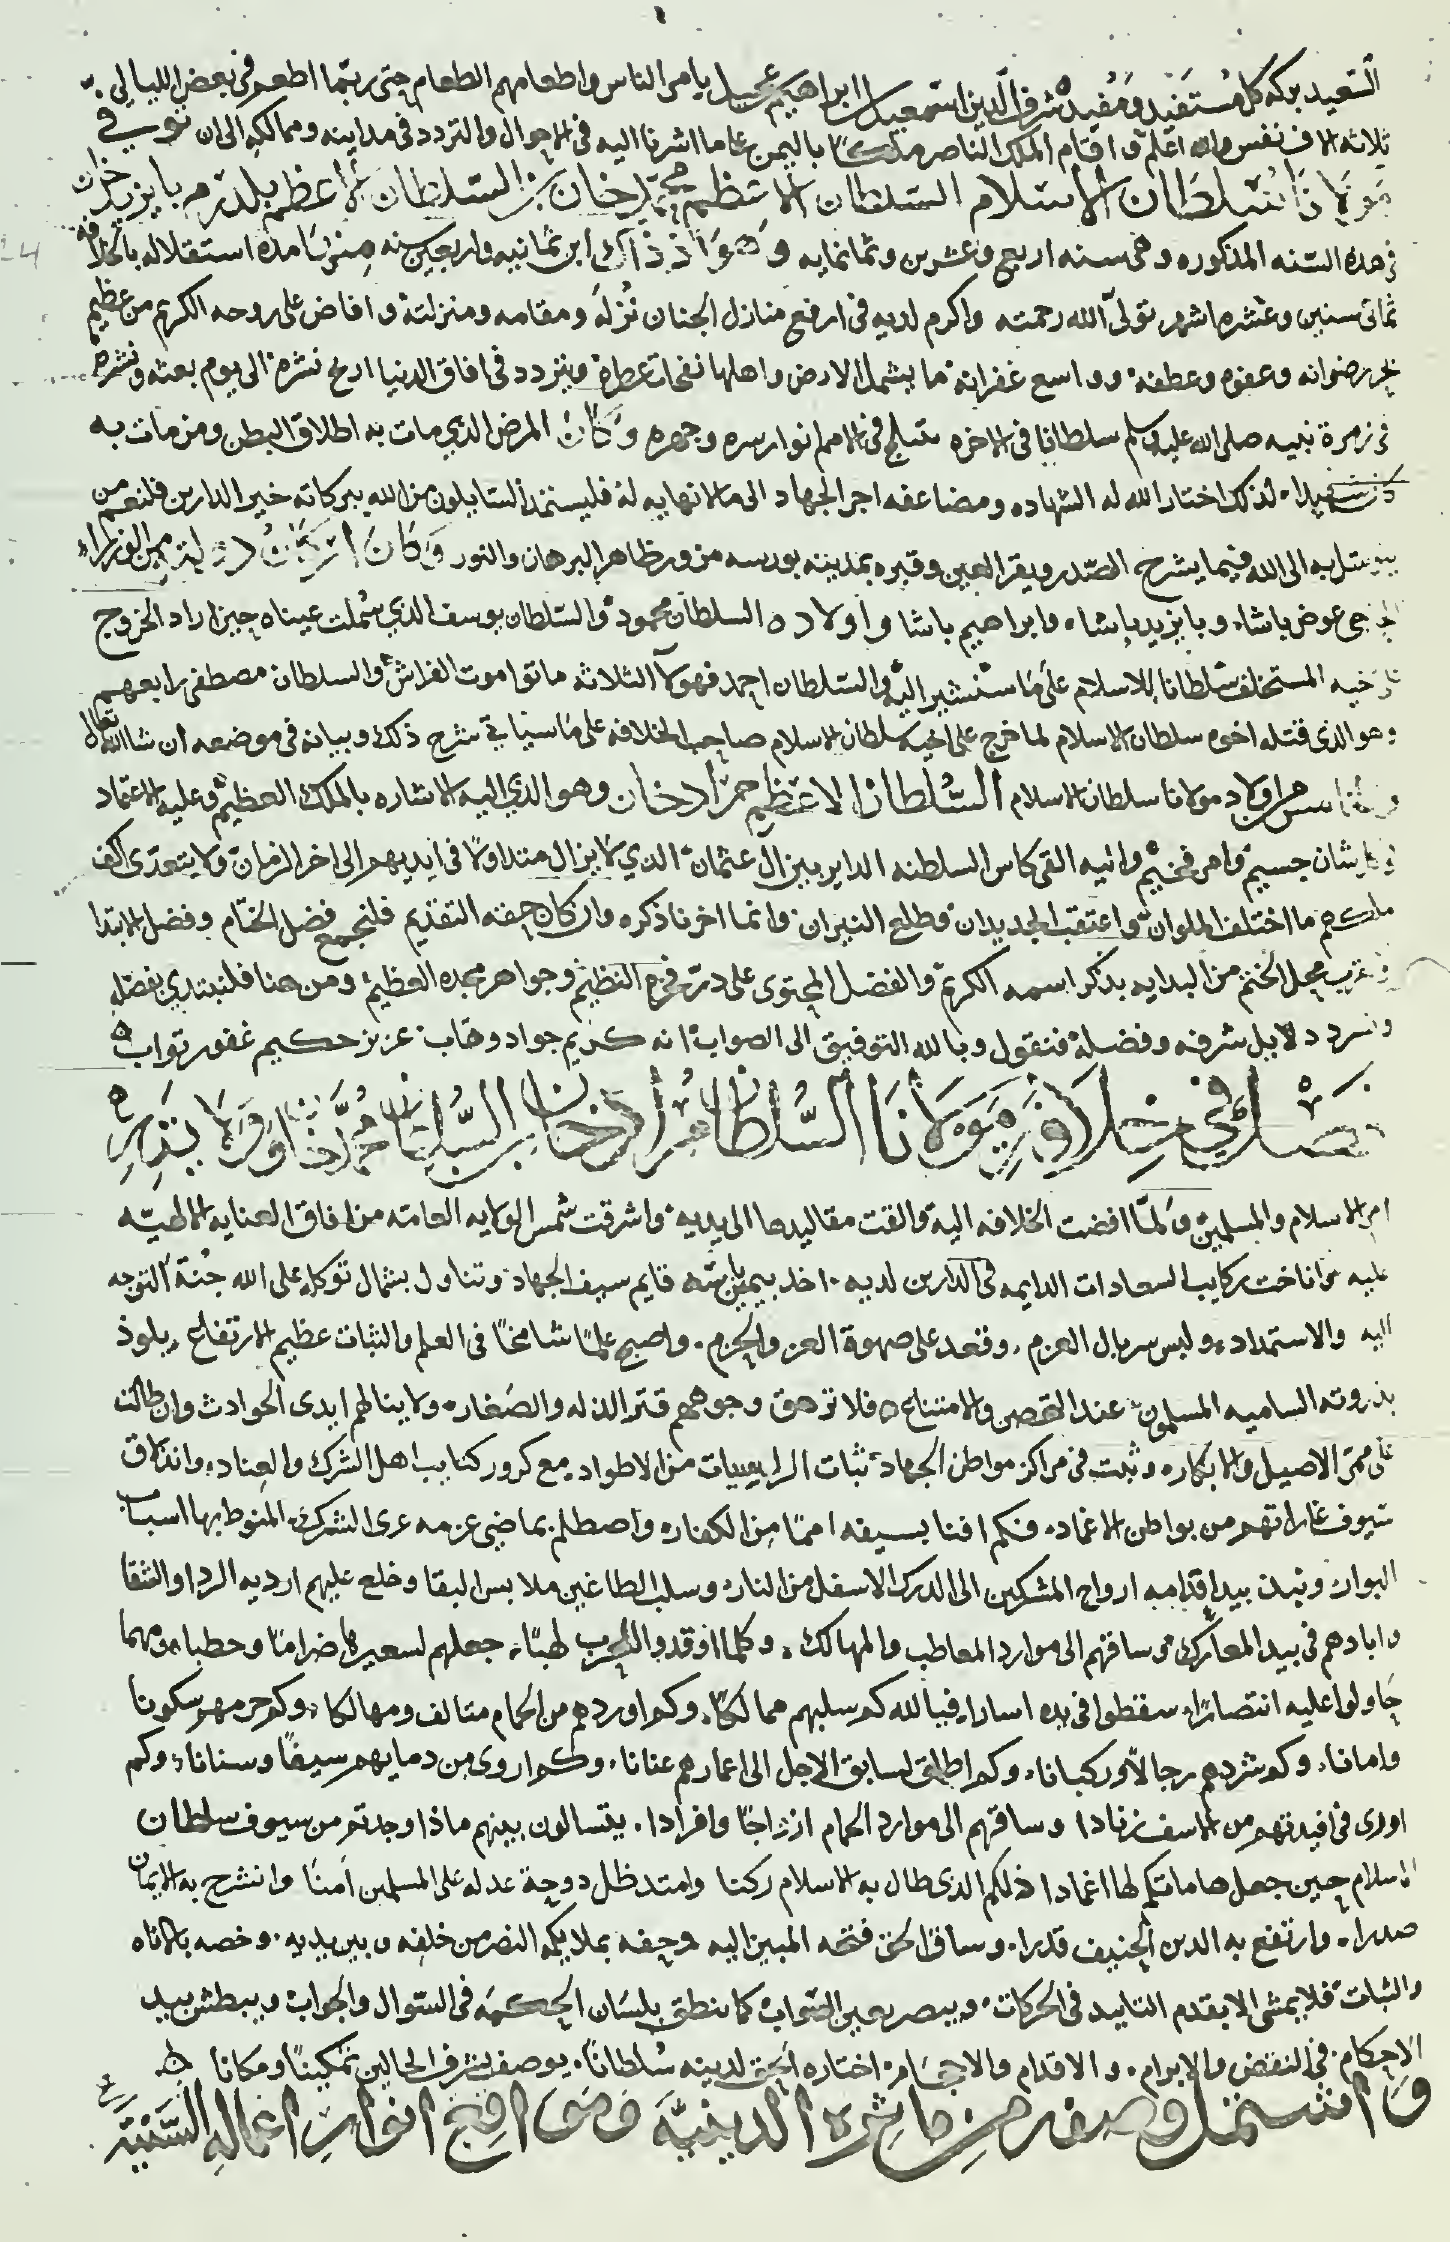 السعيد بركة كل مستفيد ومفيد شرف الدين اسمعيل ابن ابراهيم عجيل يامر الناس واطعامهم الطعام حتى ربما اطعم في بعض الليالي
ثلاثه الاف نفس والله اعلم واقام الملك الناصر ملكًا باليمن عاما اشرنا اليه في الاحوال والتردد في مداينه وممالكه الى ان توفي
مولانا سلطان الاسلام السلطان الاعظم محمد خان بن السلطان الاعظم يلدرم بايزيد خان
في هذه السنه المذكوره وهي سنه اربع وعشرين وثمانمايه وهو اذ ذاك ابن ثمانيه واربعين سنه منها مدة استقلاله بالخلافه
ثماني سنين وعشره اشهر تولى الله رحمته واكرم لديه في ارفع منازل الجنان نزله ومقامه ومنزلته وافاض على روحه الكريم من عظيم
بحر رضوانه وعفوه وعطفه وواسع غفرانه ما يشمل الارض واهلها نفحات عطره ويتردد في افاق الدنيا اريج نشره الى يوم بعثه ونشره
في زمرة نبيه صلى الله عليه وسلم سلطانا في الاخره تتبلج في الامم انوار سره وجهره وكان المرض الذي مات به اطلاق البطن ومن مات به
كان شهيدا لذلك اختار الله له الشهاده ومضاعفه اجر الجهاد الى ما لا نهايه له فليستمد السايلون من الله ببركاته خير الدارين فلنعم من
يتوسل به الى الله فيما يشرح الصدر ويقر العين وقبره بمدينه بورسه مزور ظاهر البرهان والنور وكان اركان دولته من الوزراء
حاجي عوض باشا وبايزيد باشا وابراهيم باشا واولاده السلطان محمود والسلطان يوسف الذي سملت عيناه حين اراد الخروج
على اخيه المستخلف سلطانا للاسلام على ما سنشير اليه والسلطان احمد فهولا الثلاثه ماتوا موت الفراش والسلطان مصطفى رابعهم
وهو الذي قتله اخوه سلطان الاسلام لما خرج على اخيه سلطان الاسلام صاحب الخلافه على ما سياتي شرح ذلك وبيانه في موضعه ان شا الله تعالى
اولاد مولانا سلطان الاسلام السلطان الاعظم مراد خان وهو الذي اليه الاشاره بالملك العظيم وعليه الاعتماد
شان جسيم وامر فخيم واليه القي كاس السلطنه الداير بين ال عثمان الذي لا يزال متداولا في ايديهم الى اخر الزمان ولا يتعدى اكف
ملكهم ما اختلف الملوان واعتقب الجديدان وطلع النيران وانما اخرنا ذكره وان كان حقه التقديم فلنجمع فضل الختام وفضل الابتدا
محل الختم من البدايه بذكر اسمه الكريم والفضل المحتوى على در فخره النظيم وجواهر مجده العظيم ومن هنا فلنبتدي بفضله
ونسرد دلايل شرفه وفضله فنقول وبالله التوفيق الى الصواب انه كريم جواد وهاب عزيز حكيم غفور تواب
فصل في خلافة مولانا السلطان مراد خان بن السلطان محمد خان وولايته
امر الاسلام والمسلمين ولما افضت الخلافه اليه والقت مقاليدها الى يديه واشرقت شمس الولايه العامه من افاق العنايه الالهيه
عليه واناخت ركايب السعادات الدايمه في الدارين لديه اخذ بيمين يمنه قايم سيف الجهاد وتناول بشمال توكله على الله جنة التوجه
اليه والاستمداد ولبس سربال العزم وقعد على صهوة العز والحزم واصبح علمًا شامخًا في العلم والثبات عظيم الارتفاع يلوذ
بذروته الساميه المسلمون عند التحصن والامتناع فلا ترهق وجوههم قتر الذله والصغار ولا ينالهم ايدى الحوادث وان طالت
على ممر الاصيل والابكار وثبت في مراكز مواطن الجهاد ثبات الراسيات من الاطواد مع كرور كتايب اهل الشرك والعناد واندلاق
سيوف غاراتهم من بواطن الاغماد فكم افنا بسيفه امما من الكفار واصطلم بماضي عزمه عرى الشرك المنوط بها اسباب
البوار ونبذ بيد اقدامه ارواح المشركين الى الدرك الاسفل من النار وسلب الطاغين ملابس البقا وخلع عليهم ارديه الردا والشقا
وابادهم في بيد المعارك وساقهم الى موارد المعاطب والمهالك وكلما اوقدوا للحرب لهبًا جعلهم لسعيرها ضرامًا وحطبا ومهما
حاولوا عليه انتصارًا سقطوا في يده اسارا فيالله كم سلبهم ممالكًا وكم اوردهم من الحمام متالف ومهالكا وكم حرمهم سكونا
وامانا وكم شردهم رجالًا وركبانا وكم اطلق لسابق الاجل الى اعمارهم عنانا وكم اروى من دمايهم سيفًا وسنانا وكم
اورى في افيدتهم من الاسف زنادا وساقهم الى موارد الحمام ازواجًا وافرادا يتسالون بينهم ماذا وجدتم من سيوف سلطان
الاسلام حين جعل هاماتكم لها اغمادا ذلكم الذي طال به الاسلام ركنا وامتد ظل دوحة عدله على المسلمين امنًا وانشرح به الايمان
صدرا وارتفع به الدين الحنيف قدرا وساق الحق فتحه المبين اليه وحفه بملايكة النصر من خلفه وبين يديه وخصه بالاناه
والثبات فلا يمشى الا بقدم التاييد في الحركات ويبصر بعين الصواب كما ينطق بلسان الحكمه في السوال والجواب ويبطش بيد
الاحكام في النقض والابرام والاقدام والاحجام اختاره الحق لدينه سلطانًا يوصف بشرف الحالين تمكينًا ومكانا
واشتمل وصفه من ماثره الدينية ومواقع انوار اعماله السنية